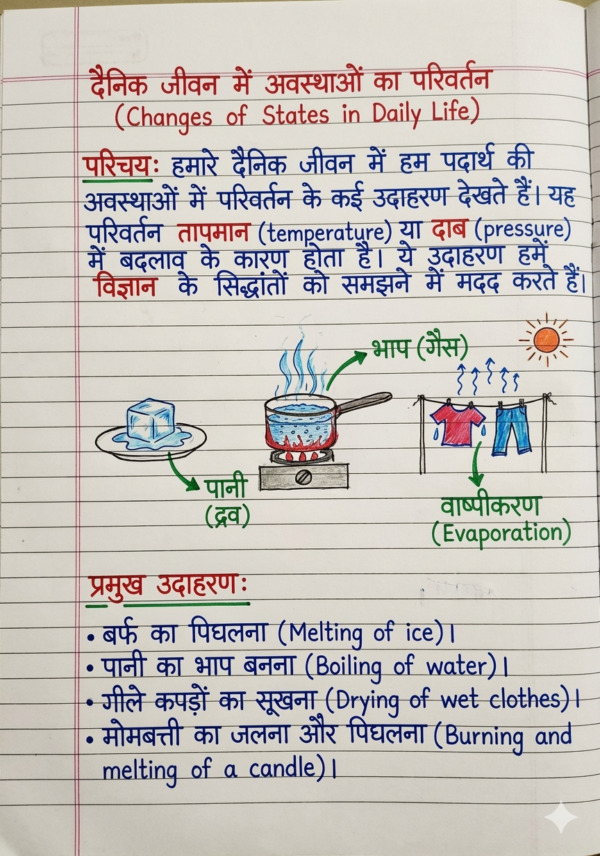 दैनिक जीवन में अवस्थाओं का परिवर्तन
(Changes of States in Daily Life)
परिचय: हमारे दैनिक जीवन में हम पदार्थ की
अवस्थाओं में परिवर्तन के कई उदाहरण देखते हैं। यह
परिवर्तन तापमान (temperature) या दाब (pressure)
में बदलाव के कारण होता है। ये उदाहरण हमें
विज्ञान के सिद्धांतों को समझने में मदद करते हैं।
भाप (गैस)
पानी
(द्रव)
वाष्पीकरण
(Evaporation)
प्रमुख उदाहरण:
• बर्फ का पिघलना (Melting of ice)।
• पानी का भाप बनना (Boiling of water)।
• गीले कपड़ों का सूखना (Drying of wet clothes)।
• मोमबत्ती का जलना और पिघलना (Burning and
melting of a candle)।